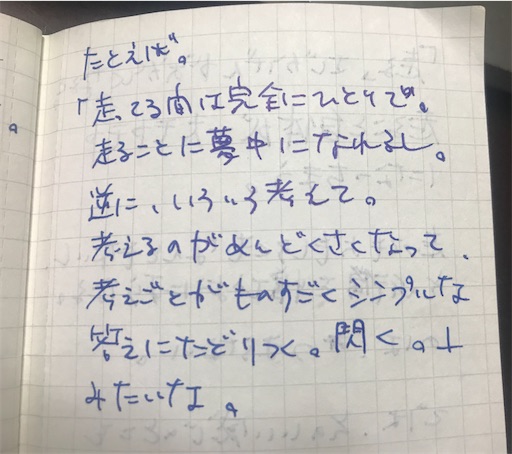 たとえば。
「走てる間は完全にひとりで。
走ることに夢中になれるし。
逆に、いろいろ考えて。
考えるのがめんどくさくなって、
考えごとがものすごくシンプルな
答えにたどりつく。閃く。」
みたいな。